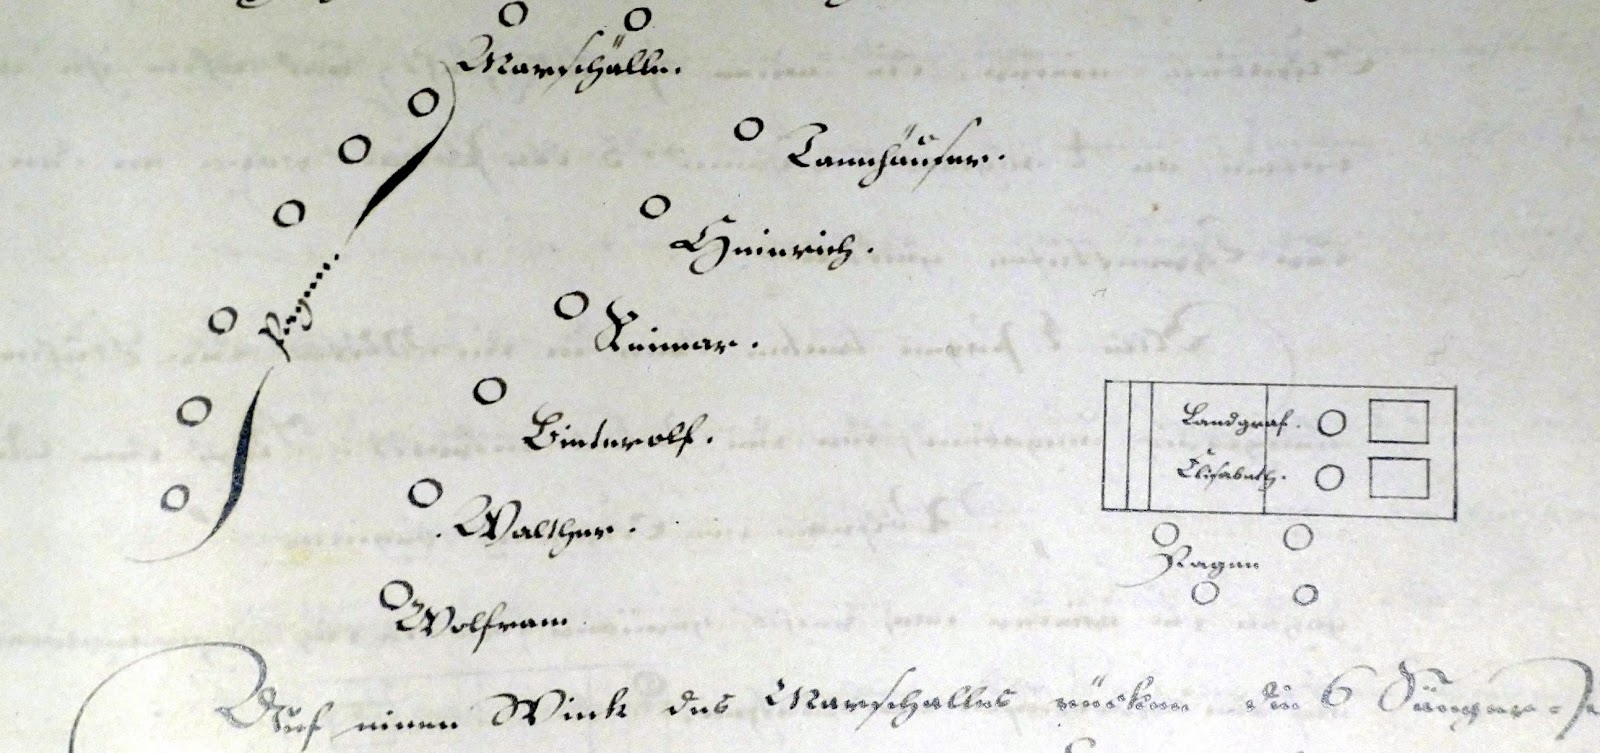 Marschälle.
Tannhäuser.
Heinrich.
Reimar.
Biterolf.
Walther.
Wolfram
Landgraf.
Elisabeth.
Pagen
Auf einen Wink des Marschalles rücken die 6 Sänger-